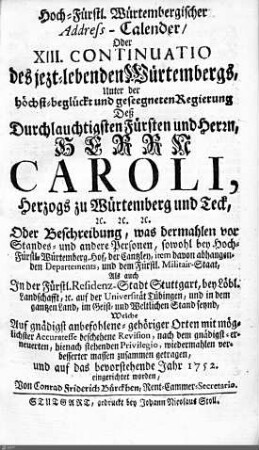 Hoch-Fürstl. Würtembergischer
Address-Calender/
Oder
XIII. CONTINUATIO
des jezt-lebenden Würtembergs,
Unter der
höchst-beglückt und geseegneten Regierung
Deß
Durchlauchtigsten Fürsten und Herrn,
HERRN
CAROLI,
Herzogs zu Würtemberg und Teck,
ꝛc. ꝛc. ꝛc.
Oder Beschreibung, was dermahlen vor
Standes- und andere Personen, sowohl bey Hoch-
Fürstl. Würtemberg. Hof, der Cantzley, item davon abhangen-
den Departements, und dem Fürstl. Militair-Staat,
Als auch
In der Fürstl. Residenz-Stadt Stuttgart, bey Löbl.
Landschafft, ꝛc. auf der Universität Tübingen, und in dem
gantzen Land, im Geist- und Weltlichen Stand seynd,
Welche
Auf gnädigst anbefohlene- gehöriger Orten mit mög-
lichster Accuratesse beschehene Revision, nach dem gnädigst-er-
neuerten, hienach stehenden Privilegio, widermahlen ver-
besserter massen zusammen getragen,
und auf das bevorstehende Jahr 1752.
eingerichtet worden,
Von Conrad Friderich Bürckhen, Rent-Cammer-Secretario.
STUTGART, gedruckt bey Johann Nicolaus Stoll.